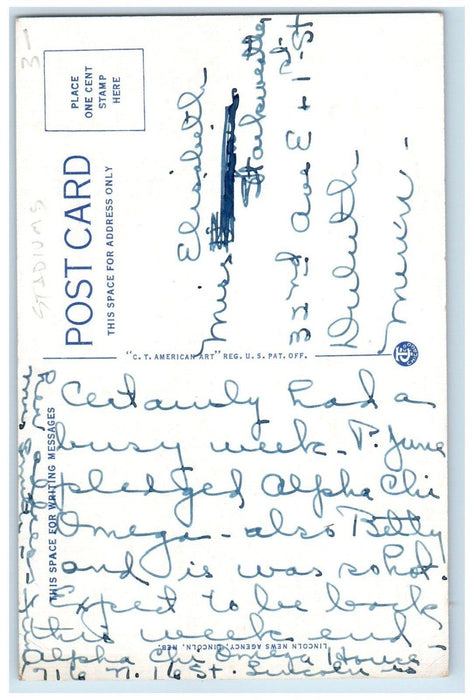 3-
STADIUMS
POST CARD
THIS SPACE FOR ADDRESS ONLY
PLACE
ONE CENT
STAMP
HERE
Miss Elisabeth
Starkweather
32nd Ave E + 1st St
Duluth
Minn.
"C. T. AMERICAN ART" REG. U. S. PAT. OFF.
THIS SPACE FOR WRITING MESSAGES
Certainly had a
busy week - P. June
pledged Alpha Chi
Omega - also Betty
and is was so hot.
Expect to be back
this week end.
Alpha Chi Omega House
716 N. 16 St. Lincoln is
address
LINCOLN NEWS AGENCY, LINCOLN, NEB.